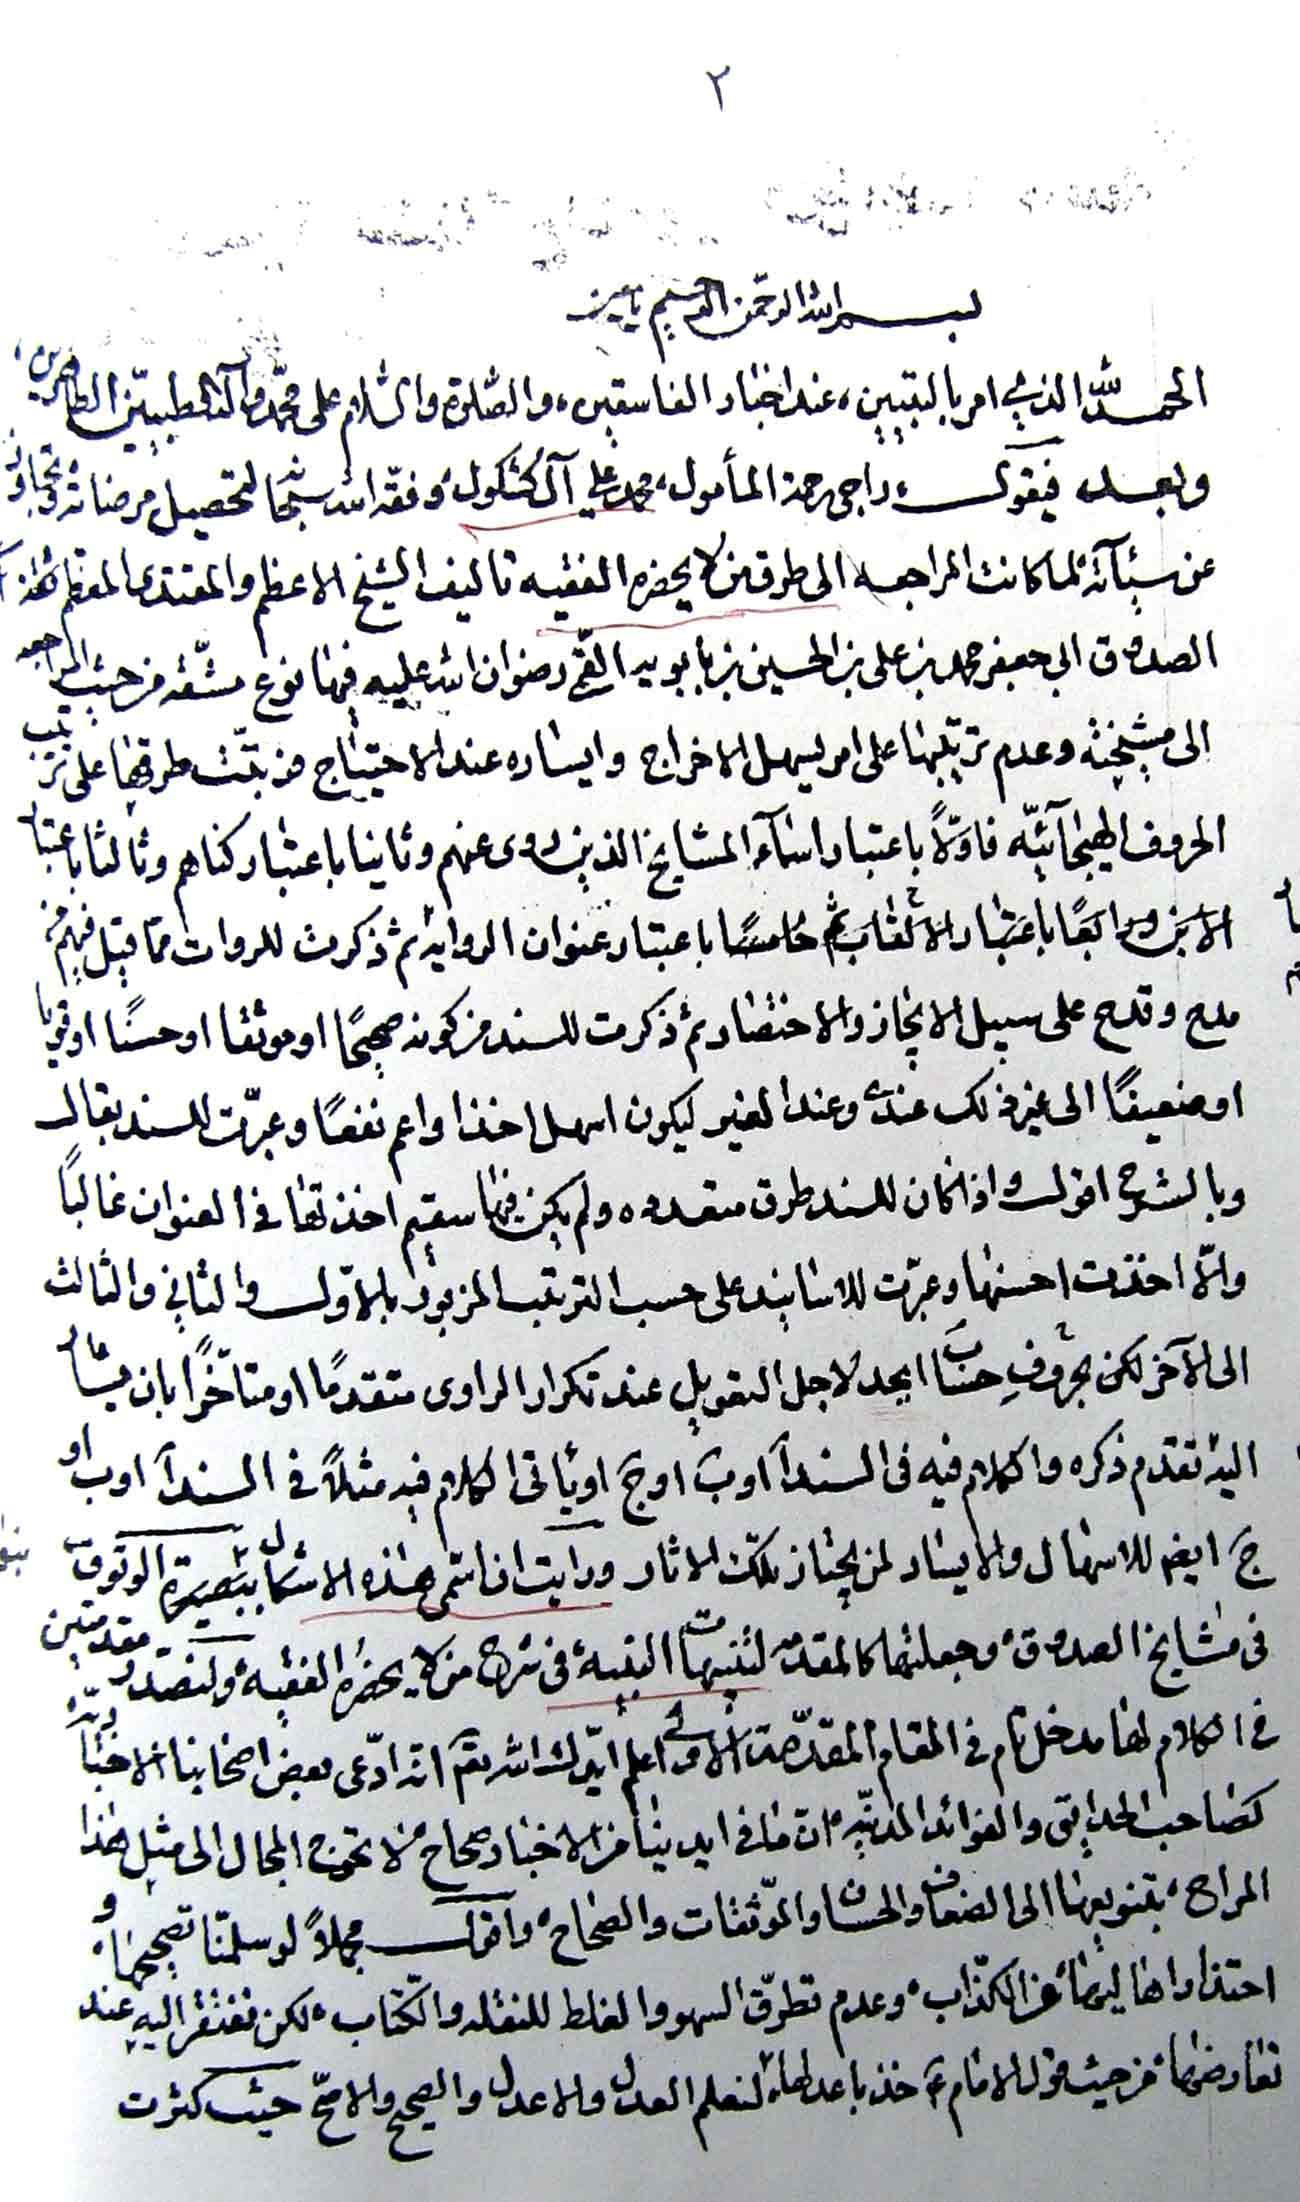 ٢
بسم الله الرحمن الرحيم
الحمد لله الذي امر بالتبيين، عند اخبار الفاسقين، والصّلوة والسّلام على محمّد وآله الطيبين الطاهرين،
وبعد فيقول، راجى رحمة المأمول، محمد علي آل كشكول، وفقه الله سبحانه لتحصيل مرضاته وتجاوز
عن سيئآته لما كانت المراجعه الى طرق من لا يحضره الفقيه تاليف الشيخ الاعظم والمقتدى المعظم
الصدوق ابي جعفر محمد بن على بن الحسين بن بابويه القمّي رضوان الله عليه فيها نوع مشقّه من حيث المراجعه
الى مشيخته وعدم ترتيبها على امر يسهل الاخراج وايساره عند الاحتياج طرقها على ترتيب
الحروف الهجائيّه فاوّلاً باعتبار اسمآء المشايخ الذين روى عنهم وثانيا باعتبار كناهم وثالثا باعتبار
الابن ورابعًا باعتبار الالقاب ثم خامسًا باعتبار عنوان الروايه ثم ذكرت للروات مما قيل فيهم من
مدح وقدح على سبيل الايجاز والاختصار ثم ذكرت للسند من كونه صحيحًا او موثقا او حسنًا او قويا
او ضعيفًا الى غير ذلك عندى وعند الغير ليكون اسهل اخذا واعم نفعًا وعبّرت للسند بقال
وبالشرح اقول واذا كان للسند طرق متعدده ولم يكن فيها سقيم اخذتها في العنوان غالبًا
والّا اخذت احسنها وعبّرت للاسانيد على حسب الترتيب المزبور بالاوّل والثاني والثالث
الى الآخر لكن بحروف حساب ابجد لاجل التعويل عند تكرار الراوى متقدمًا او متأخّرًا بان يشار
اليه تقدم ذكره والكلام فيه فى السند آ او ب او ج او يأتى الكلام فيه مثلاً فى السند آ او ب او
ج ايضا للاسهال والايسار لمن يجتاز تلك الاثار ورايت ان اسمى هذه الاشكال بتبصرة الوقوف
فى مشايخ الصدوق، وجعلتها كالمقدمة لتنبيهات النبيه، فى شرح من لا يحضره الفقيه، ولنصدر مقدمتين
في الكلام لها مدخل تام فى المقام المقدّمة الاولى اعلم ايّدك الله تعم انه ادّعى بعض اصحابنا الاخباريّة
كصاحب الحدايق والفوائد المدنيّه، انّ ما فى ايدينا من الاخبار صحاح، لا تحوج المجال الى مثل هذا
المراح، بتنويعها الى الضعاف والحسان والموّثقات والصحاح، واقول مجملاً لو سلمنا تصحيحها، و
اليها عن الكذّاب، وعدم تطرّق السهو والغلط للنقله والكتّاب، لكن نفتقر اليه عند
تعارضها، من حيث قول الامام ع خذ باعدلهما، لنعلم العدل والاعدل والصحيح والاصحّ حيث كثرت